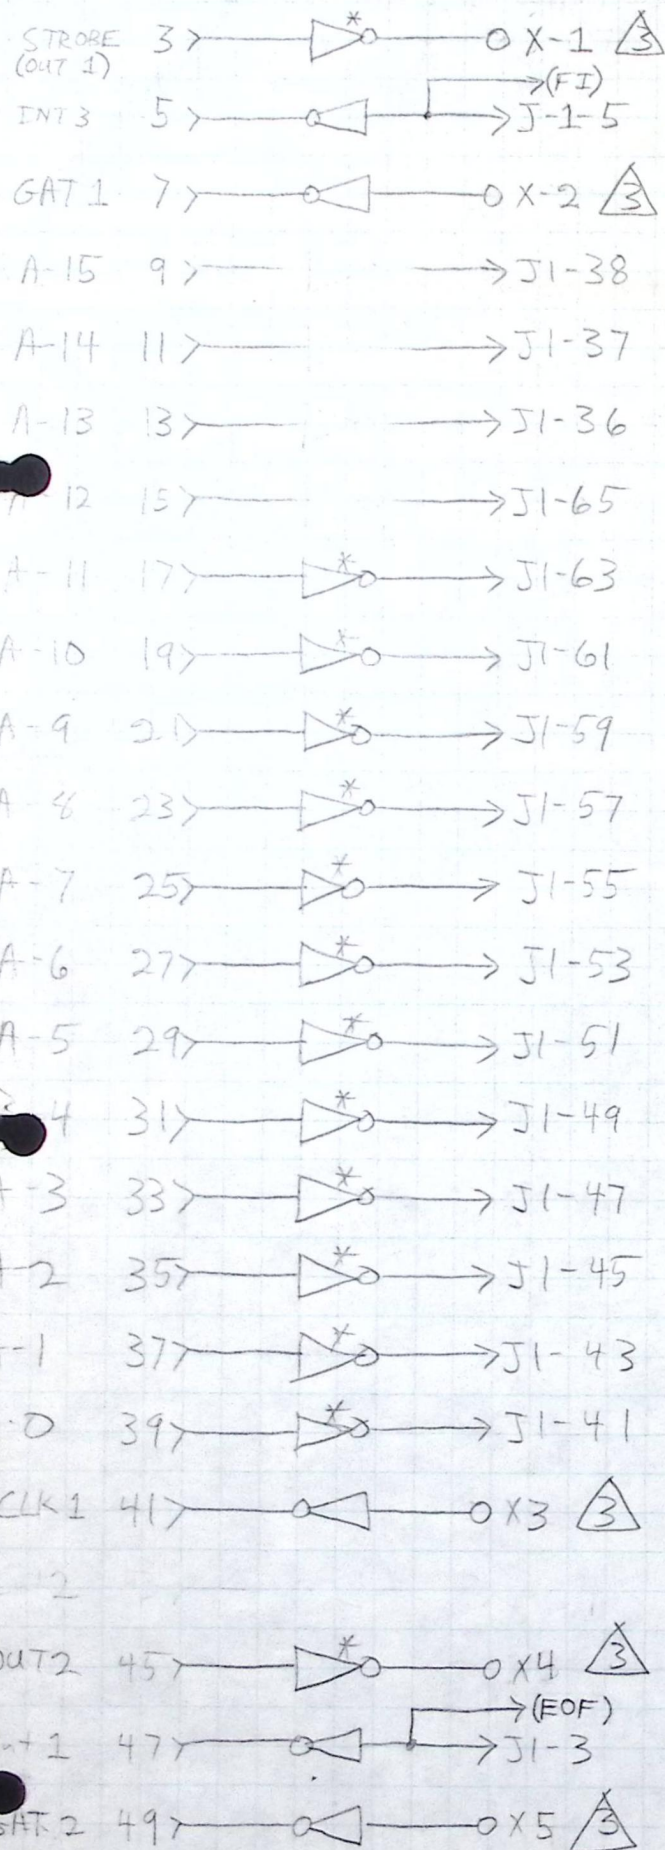 STROBE 3 * X-1 3
(OUT 1)
(FI)
INT 3 5 J-1-5
GAT 1 7 X-2 3
A-15 9 J1-38
A-14 11 J1-37
A-13 13 J1-36
12 15 J1-65
A-11 17 * J1-63
A-10 19 * J1-61
A-9 21 * J1-59
A-8 23 * J1-57
A-7 25 * J1-55
A-6 27 * J1-53
A-5 29 * J1-51
4 31 * J1-49
-3 33 * J1-47
-2 35 * J1-45
-1 37 * J1-43
-0 39 * J1-41
CLK 1 41 X3 3
2
OUT 2 45 * X4 3
(EOF)
nt 1 47 J1-3
GAT 2 49 X5 3